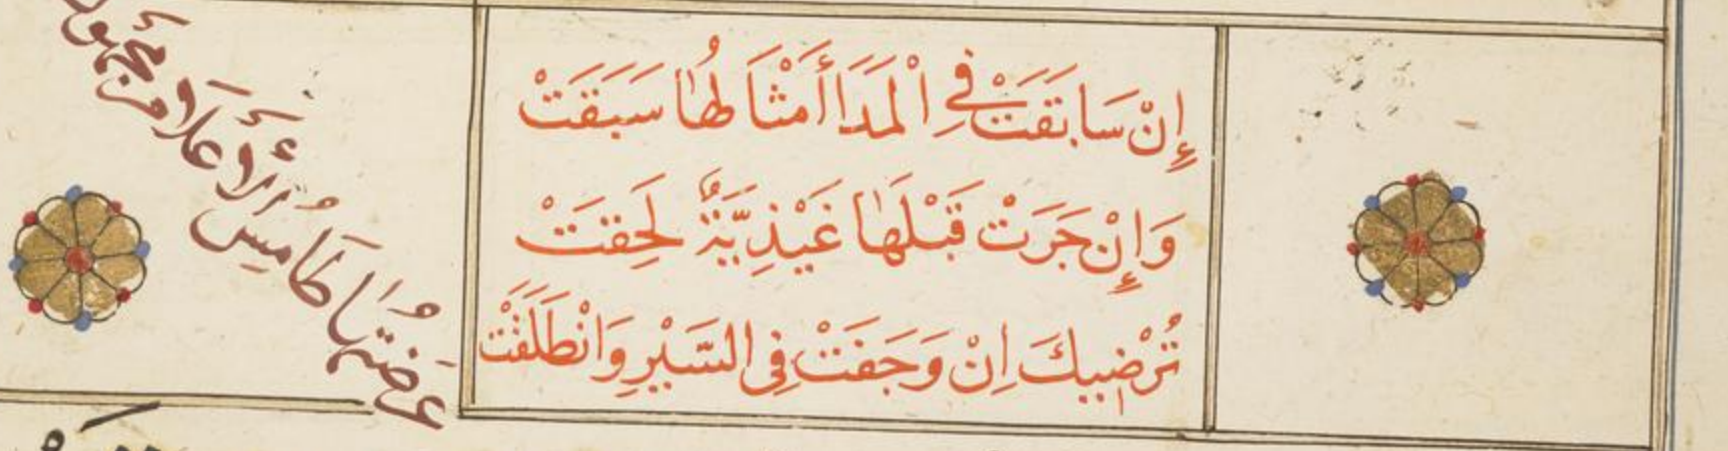 إِنْ سَابَقَتْ فِي الْمَدَا أَمْثَالُهَا سَبَقَتْ
وَإِنْ جَرَتْ قَبْلَهَا غَيْذِيَّةٌ لَحِقَتْ
تُرْضِيكَ اِنْ وَجَفَتْ فِى السَّيْرِ وَانْطَلَقَتْ
عُرْضَتُهَا طَامِسُ الأَعْلَامِ مَجْهُولُ